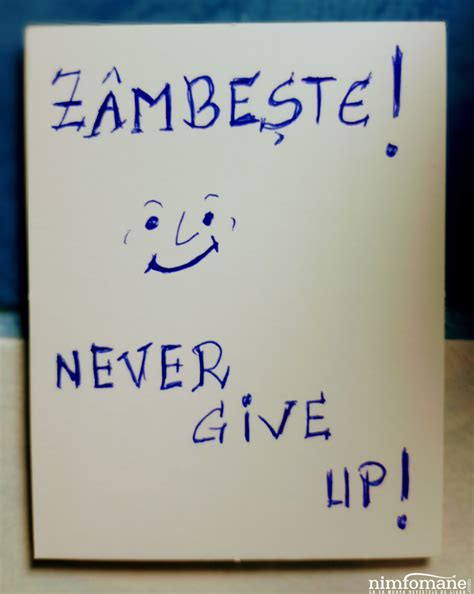 ZÂMBEȘTE!
NEVER
GIVE
UP!
nimfomane